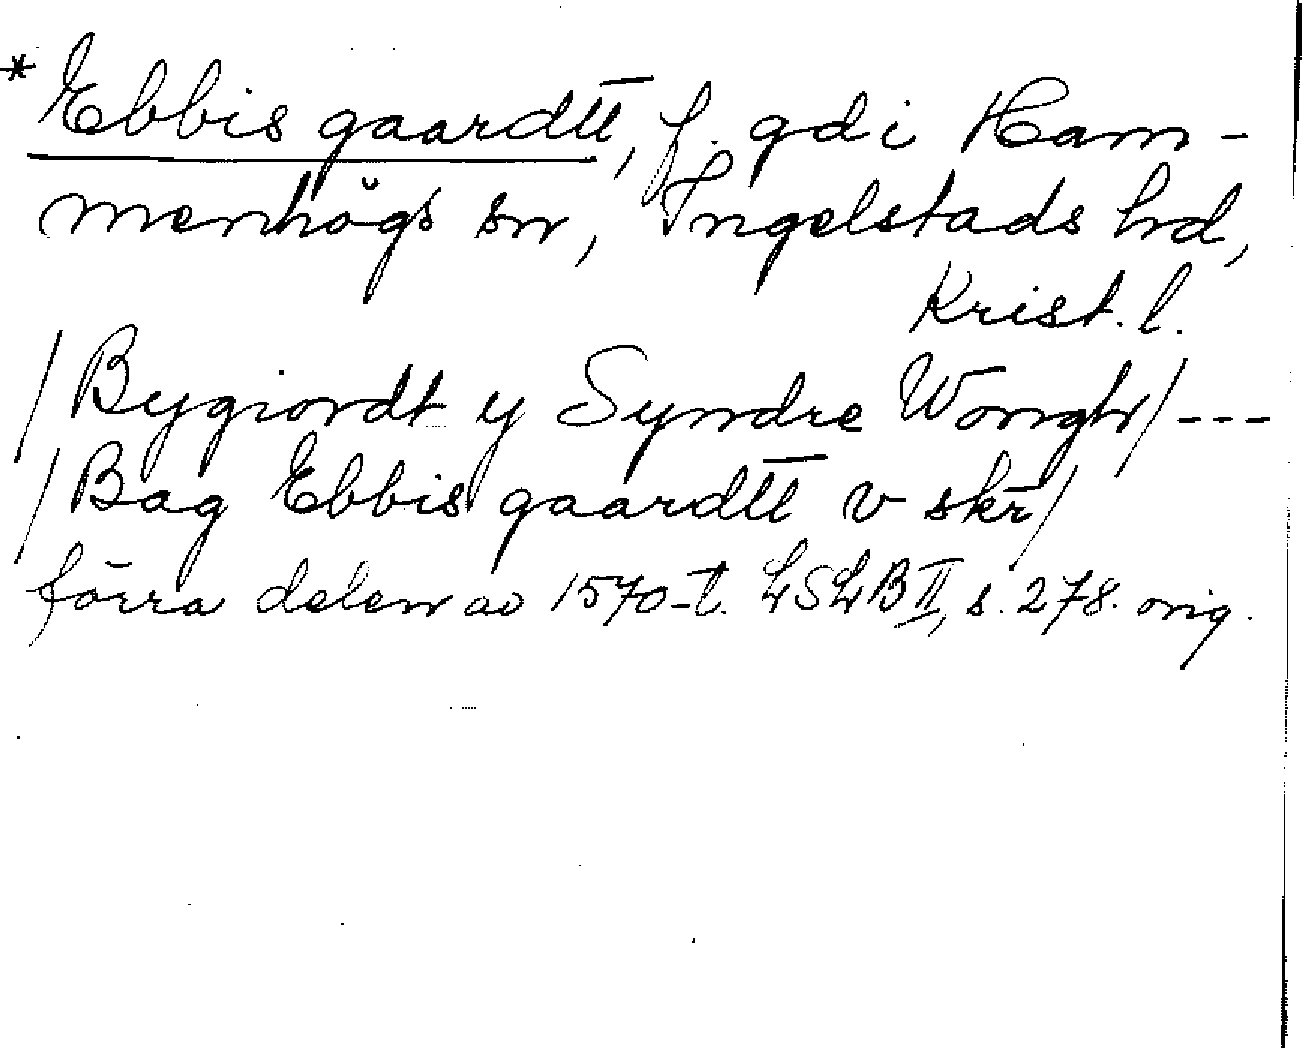 * Ebbis gaardtt̄, f. gd i Ham-
menhögs sn, Ingelstads hrd,
Krist. l.
/Bygiordt y Syndre Wongh/ ---
/Bag Ebbis gaardtt̄ v skr̄/
förra delen av 1570-t. LSLB II, s. 278. orig.